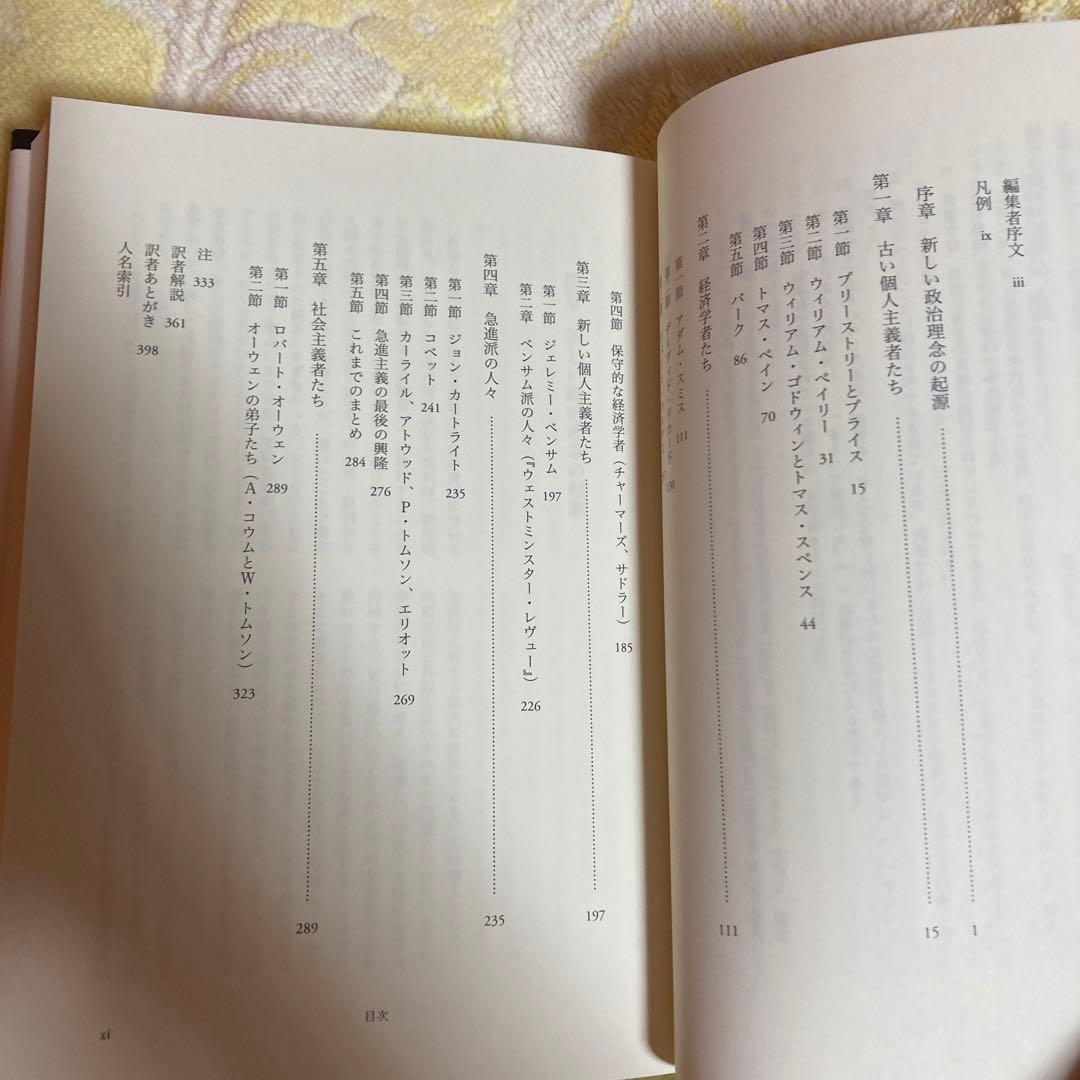 編集者序文 iii
凡例 ix
序章 新しい政治理念の起源 …… 1
第一章 古い個人主義者たち …… 15
第一節 プリーストリーとプライス 15
第二節 ウィリアム・ペイリー 31
第三節 ウィリアム・ゴドウィンとトマス・スペンス 44
第四節 トマス・ペイン 70
第五節 バーク 86
第二章 経済学者たち …… 111
第一節 アダム・スミス 111
デイヴィド・リカード 130
第四節 保守的な経済学者(チャーマーズ、サドラー) 185
第三章 新しい個人主義者たち …… 197
第一節 ジェレミー・ベンサム 197
第二章 ベンサム派の人々(『ウェストミンスター・レヴュー』) 226
第四章 急進派の人々 …… 235
第一節 ジョン・カートライト 235
第二節 コベット 241
第三節 カーライル、アトウッド、P・トムソン、エリオット 269
第四節 急進主義の最後の興隆 276
第五節 これまでのまとめ 284
第五章 社会主義者たち …… 289
第一節 ロバート・オーウェン 289
第二節 オーウェンの弟子たち(A・コウムとW・トムソン) 323
注 333
訳者解説 361
訳者あとがき 398
人名索引
目次
xi